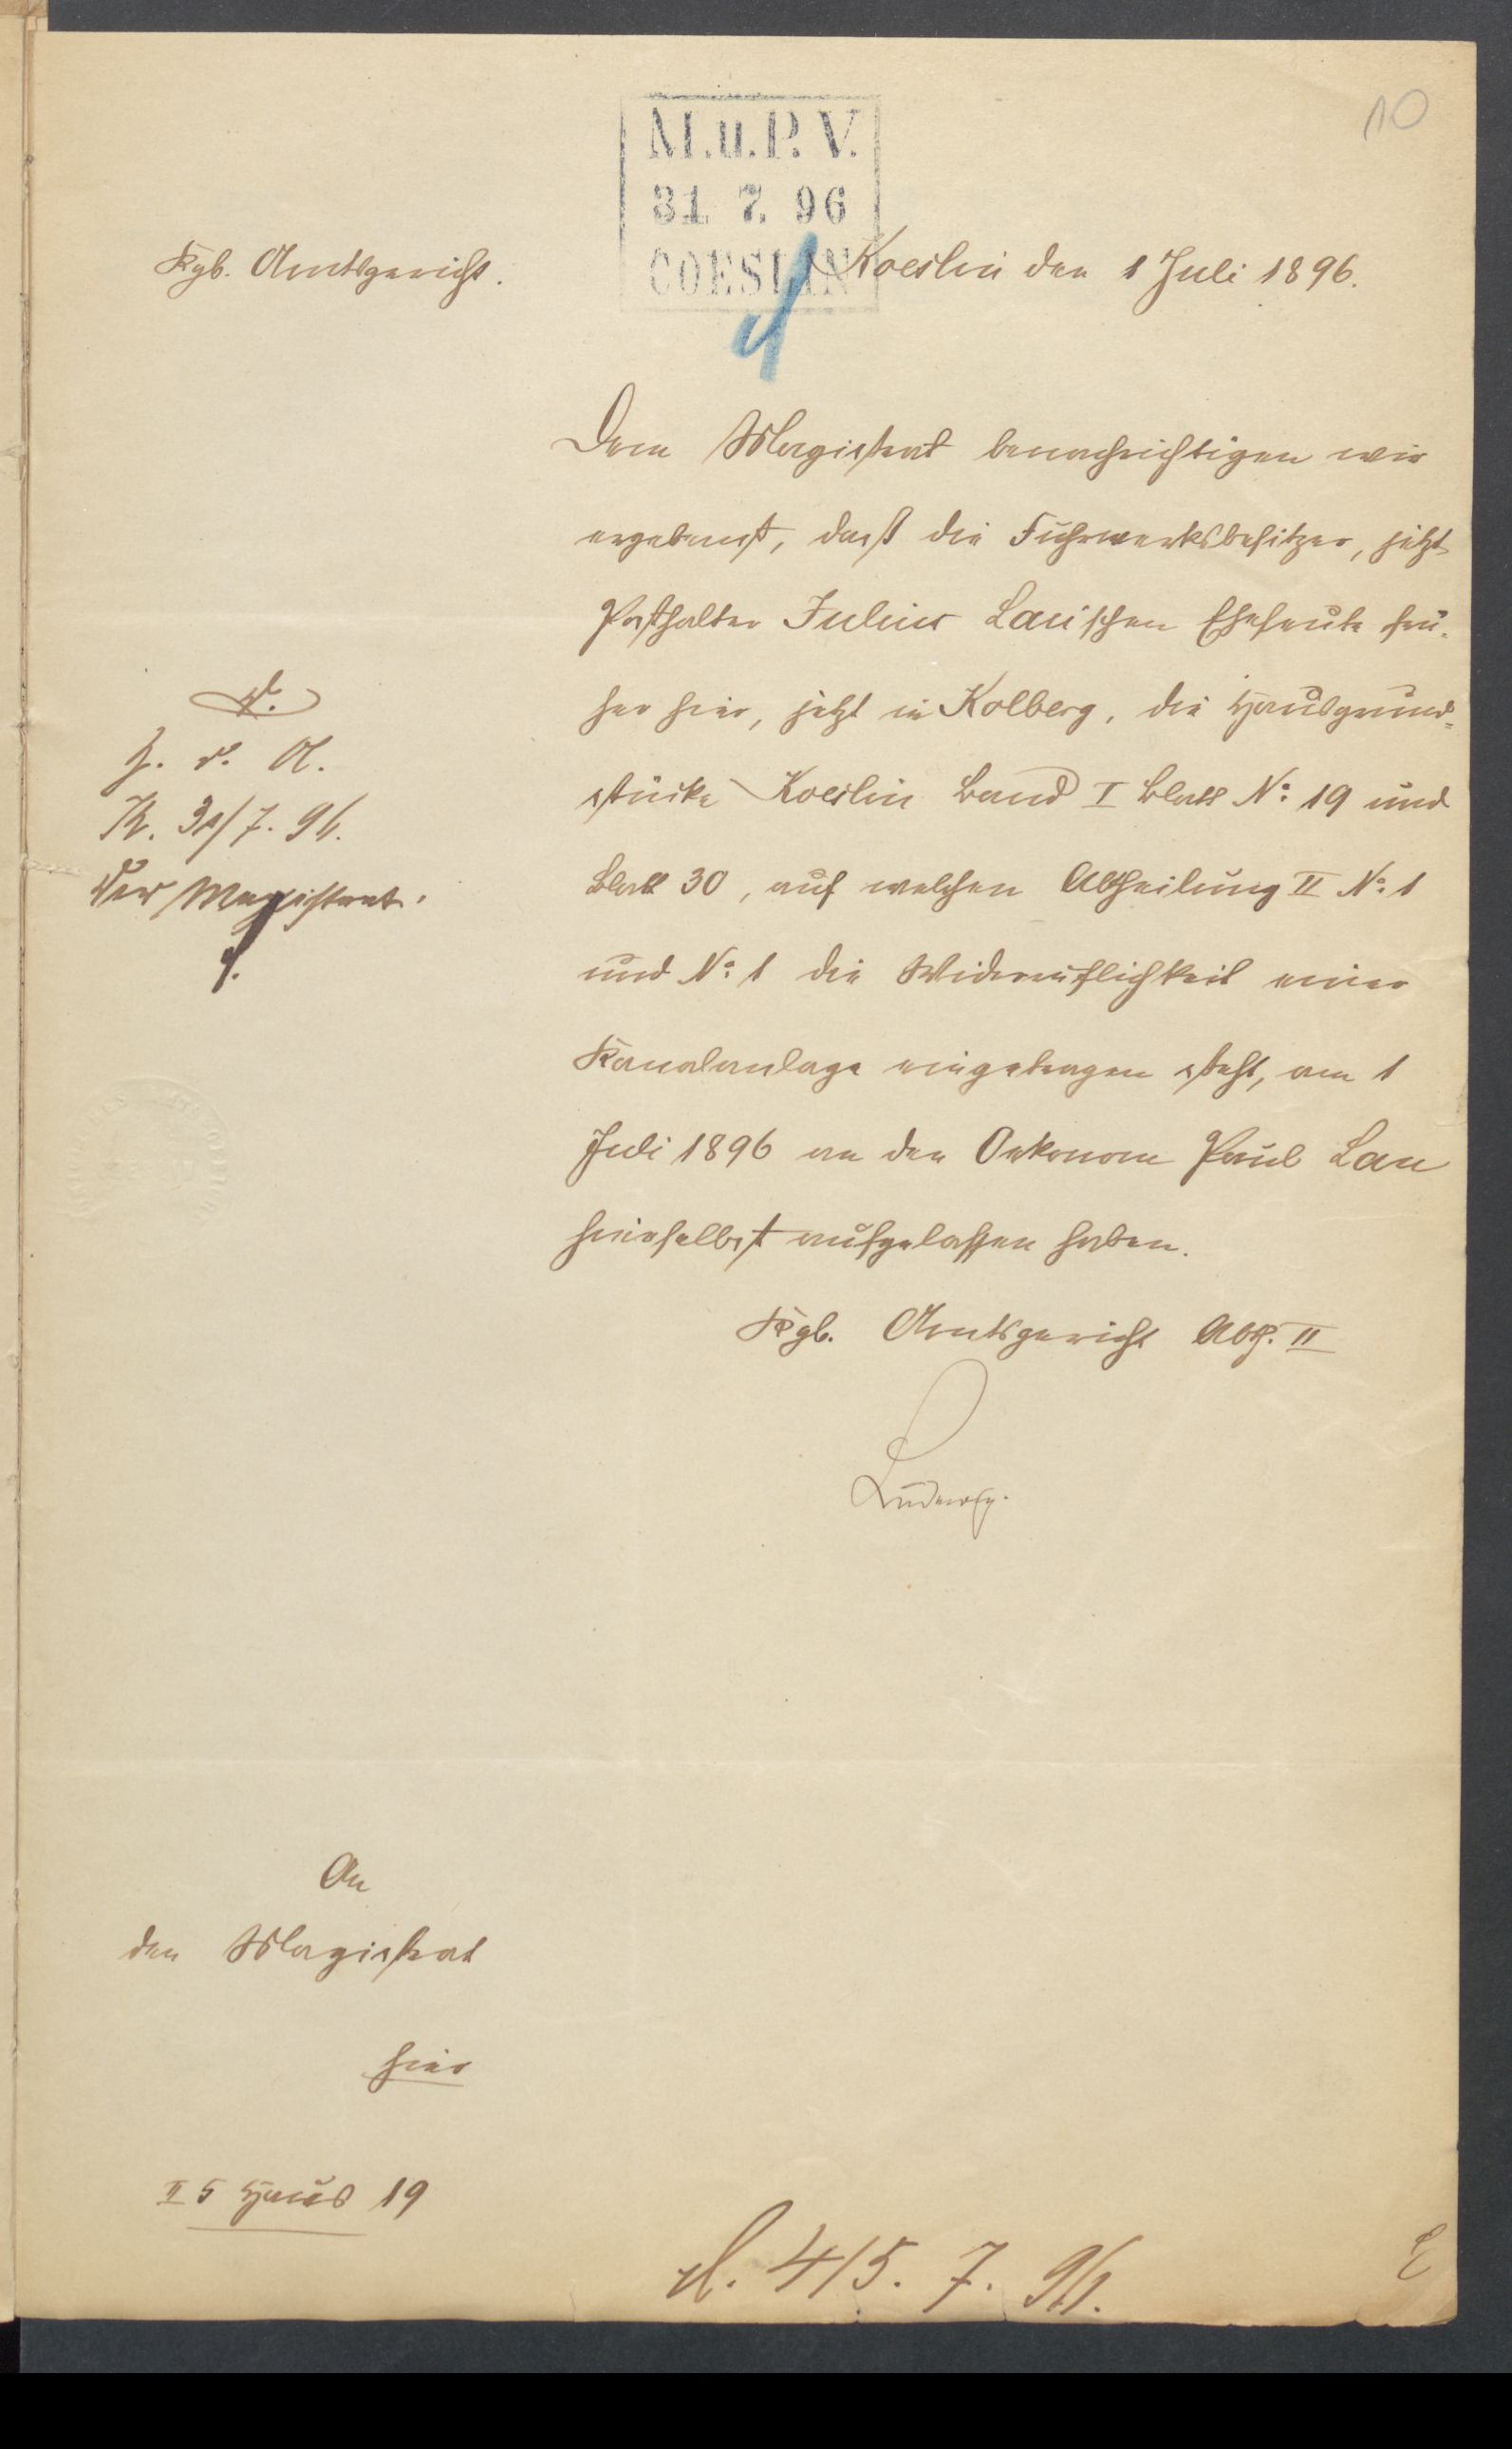 10
M.u.P.V.
31 7. 96
COESLIN
Kgl. Amtsgericht.
Koeslin den 1 Juli 1896.
Dem Magistrat benachrichtigen wir
ergebenst, daß die Fuhrwerksbesitzer, jetzt
Posthalter Julius Lau'schen Eheleute frü-
her hier, jetzt in Kolberg, die Hausgrund-
stücke Koeslin Band I Blatt No: 19 und
Blatt 30, auf welchen Abtheilung II No: 1
und No: 1 die Widerruflichkeit einer
Kanalanlage eingetragen steht, am 1
Juli 1896 an den Oekonom Paul Lau
hierselbst aufgelassen haben.
Kgl. Amtsgericht Abth. II
V.
Z. d. A.
K. 31/7. 96.
Der Magistrat.
An
den Magistrat
hier
II 5 Haus 19
415. 7. 96.